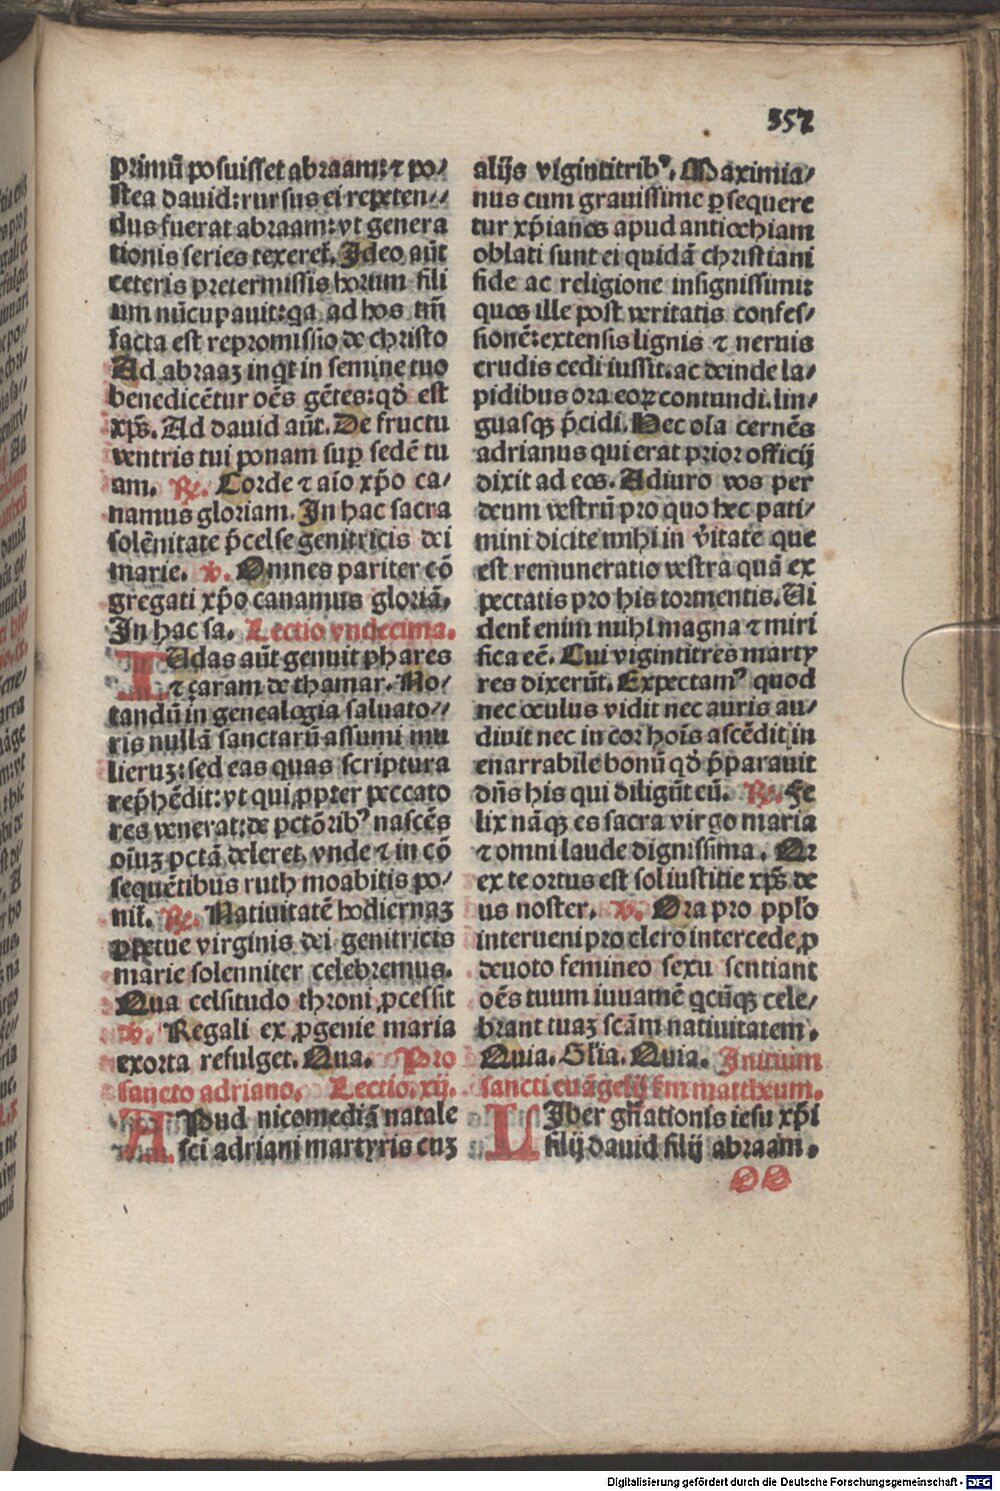 357
primũ posuisset abraam: ⁊ po⸗
stea dauid: rursus ei repeten⸗
dus fuerat abraam: vt genera
tionis series texeret̃. Ideo aũt
ceteris pretermissis horum fili
um nũcupauit: qa ad hos tm̃
facta est repromissio de christo
Ad abraaʒ inqt in semine tuo
benedicẽtur oẽs gẽtes: qđ est
xp̃s. Ad dauid aũt. De fructu
ventris tui ponam suꝑ sedẽ tu
am. ℟. Corde ⁊ aĩo xp̃o ca⸗
namus gloriam. In hac sacra
solẽnitate p̃celse genitricis dei
marie. ℣. Omnes pariter cõ
gregati xp̃o canamus gloriã.
In hac sa. Lectio vndecima.
IUdas aũt genuit phares
⁊ çaram de thamar. No⸗
tandũ in genealogia saluato⸗
ris nullã sanctarũ assumi mu
lieruʒ: sed eas quas scriptura
rep̃hẽdit: vt qui ꝓpter peccato
res venerat: de pctõribꝰ nascẽs
oĩuʒ pctã deleret. vnde ⁊ in cõ
sequẽtibus ruth moabitis po⸗
nit̃. ℟. Natiuitatẽ hodiernaʒ
ꝑpetue virginis dei genitricis
marie solenniter celebremus.
Qua celsitudo throni ꝓcessit
℣. Regali ex ꝓgenie maria
exorta refulget. Qua. Pro
sancto adriano. Lectio. xij.
APud nicomediã natale
sc̃i adriani martyris cuʒ
alijs vigintitribꝰ. Maximia⸗
nus cum grauissime ꝑsequere
tur xp̃ianos apud antiochiam
oblati sunt ei quidã christiani
fide ac religione insignissimi:
quos ille post veritatis confes⸗
sionẽ: extensis lignis ⁊ neruis
crudis cedi iussit. ac deinde la⸗
pidibus ora eoꝝ contundi. lin⸗
guasqꝫ p̃cidi. Hec oĩa cernẽs
adrianus qui erat prior officij
dixit ad eos. Adiuro vos per
deum vestrũ pro quo hec pati⸗
mini dicite mihi in v̾itate que
est remuneratio vestra quã ex
pectatis pro his tormentis. Ui
dent̃ enim mihi magna ⁊ miri
fica eẽ. Cui vigintitres marty
res dixerũt. Expectamꝰ quod
nec oculus vidit nec auris au⸗
diuit nec in cor hoĩs ascẽdit in
enarrabile bonũ qđ p̃parauit
dñs his qui diligũt eũ. ℟. Fe
lix nãqꝫ es sacra virgo maria
⁊ omni laude dignissima. Qr
ex te ortus est sol iustitie xp̃s de
us noster. ℣. Ora pro pplo
interueni pro clero intercede ꝓ
deuoto femineo sexu sentiant
oẽs tuum iuuamẽ qcũqꝫ cele⸗
brant tuaʒ scãm natiuitatem.
Quia. Gl̃ia. Quia. Initium
sancti euãgelij fm mattheum.
LIber gñationis iesu xp̃i
filij dauid filij abraam.
Digitalisierung gefördert durch die Deutsche Forschungsgemeinschaft - DFG